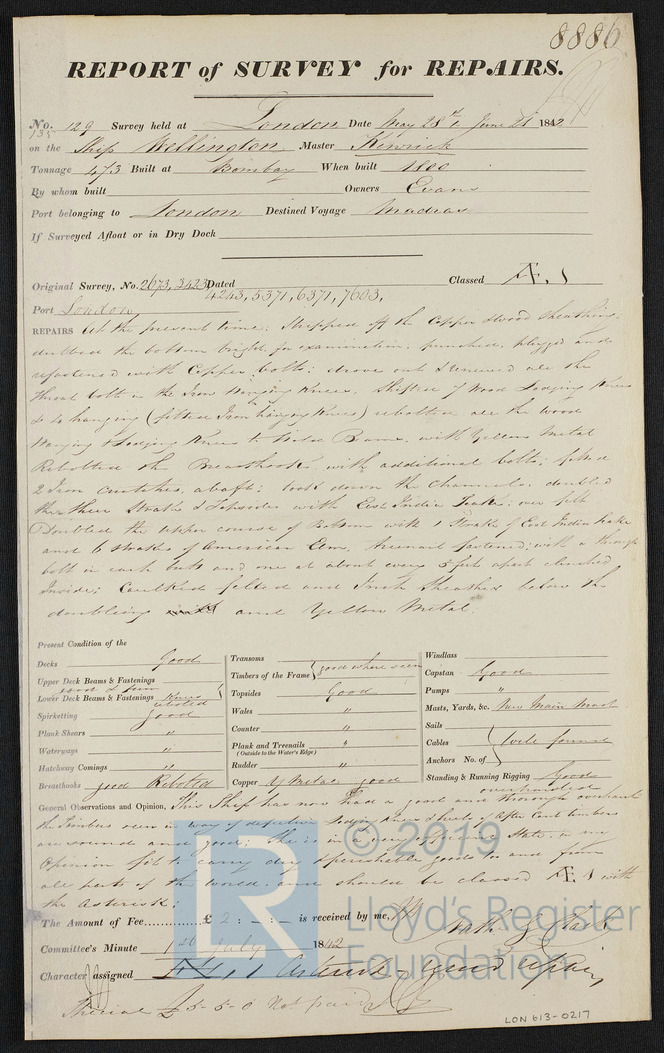 8886
REPORT of SURVEY for REPAIRS.
No. 129 Survey held at London Date May 28th & June 21 1842
135
on the Ship Wellington Master Kenrick
Tonnage 473 Built at Bombay When built 1800
By whom built Owners Evans
Port belonging to London Destined Voyage Madras
If Surveyed Afloat or in Dry Dock
Original Survey, No. 2673, 3423 Dated Classed Æ. 1
4243, 5371, 6371, 7603,
Port London,
REPAIRS At the present time: Stripped off the Copper & wood sheathing:
dubbed the bottom bright, for examination: punched, plugged and
refastened with Copper bolts: drove out & renewed all the
throat bolts in the Iron Hanging Knees, shifted 7 Wood Lodging Knees
do to hanging (fitted Iron hanging Knees) rebolted all the wood
Hanging & Lodging Knees to Hold Beams, with Yellow Metal
Rebolted the Breasthooks with additional bolts; fitted
2 Iron crutches, abaft: took down the Channels: doubled
the three Strakes & Topsides with East India Teak: over felt
Doubled the upper course of Bottom with 1 Strake of East India teake
and 6 strakes of American Elm, treenail fastened: with a through
bolt in each butt and one at about every 5 feet apart clenched
Inside; Caulked felted and sheathed below the
doubling and Yellow Metal.
Present Condition of the
Decks Good
Upper Deck Beams & Fastenings
good &
Lower Deck Beams & Fastenings Knees
rebolted
Spirketting good
Plank Shears "
Waterways "
Hatchway Comings "
Breasthooks good Rebolted
Transoms
Timbers of the Frame good where seen
Topsides Good
Wales "
Counter "
Plank and Treenails "
(Outside to the Water's Edge)
Rudder "
Copper Y Metal good
Windlass
Capstan Good
Pumps "
Masts, Yards, &c. New Main Mast
Sails
Cables
Anchors No. of well found
Standing & Running Rigging Good
overhauled
General Observations and Opinion, This Ship has now had a good and thorough overhaul
the Timbers seen in way of defective Lodging Knees & heels of After Cant timbers
are sound and good; She is in a State, in my
Opinion fit to carry dry & perishable goods to and from
all parts of the world. and should be classed Æ 1 with
the asterisk;
The Amount of Fee............£ 2 : - : - is received by me,
Committee's Minute 1st July 1842
Character assigned
Special £5-5-0 Not paid
LON 613-0217
© 2019
LR
Lloyd's Register
Foundation